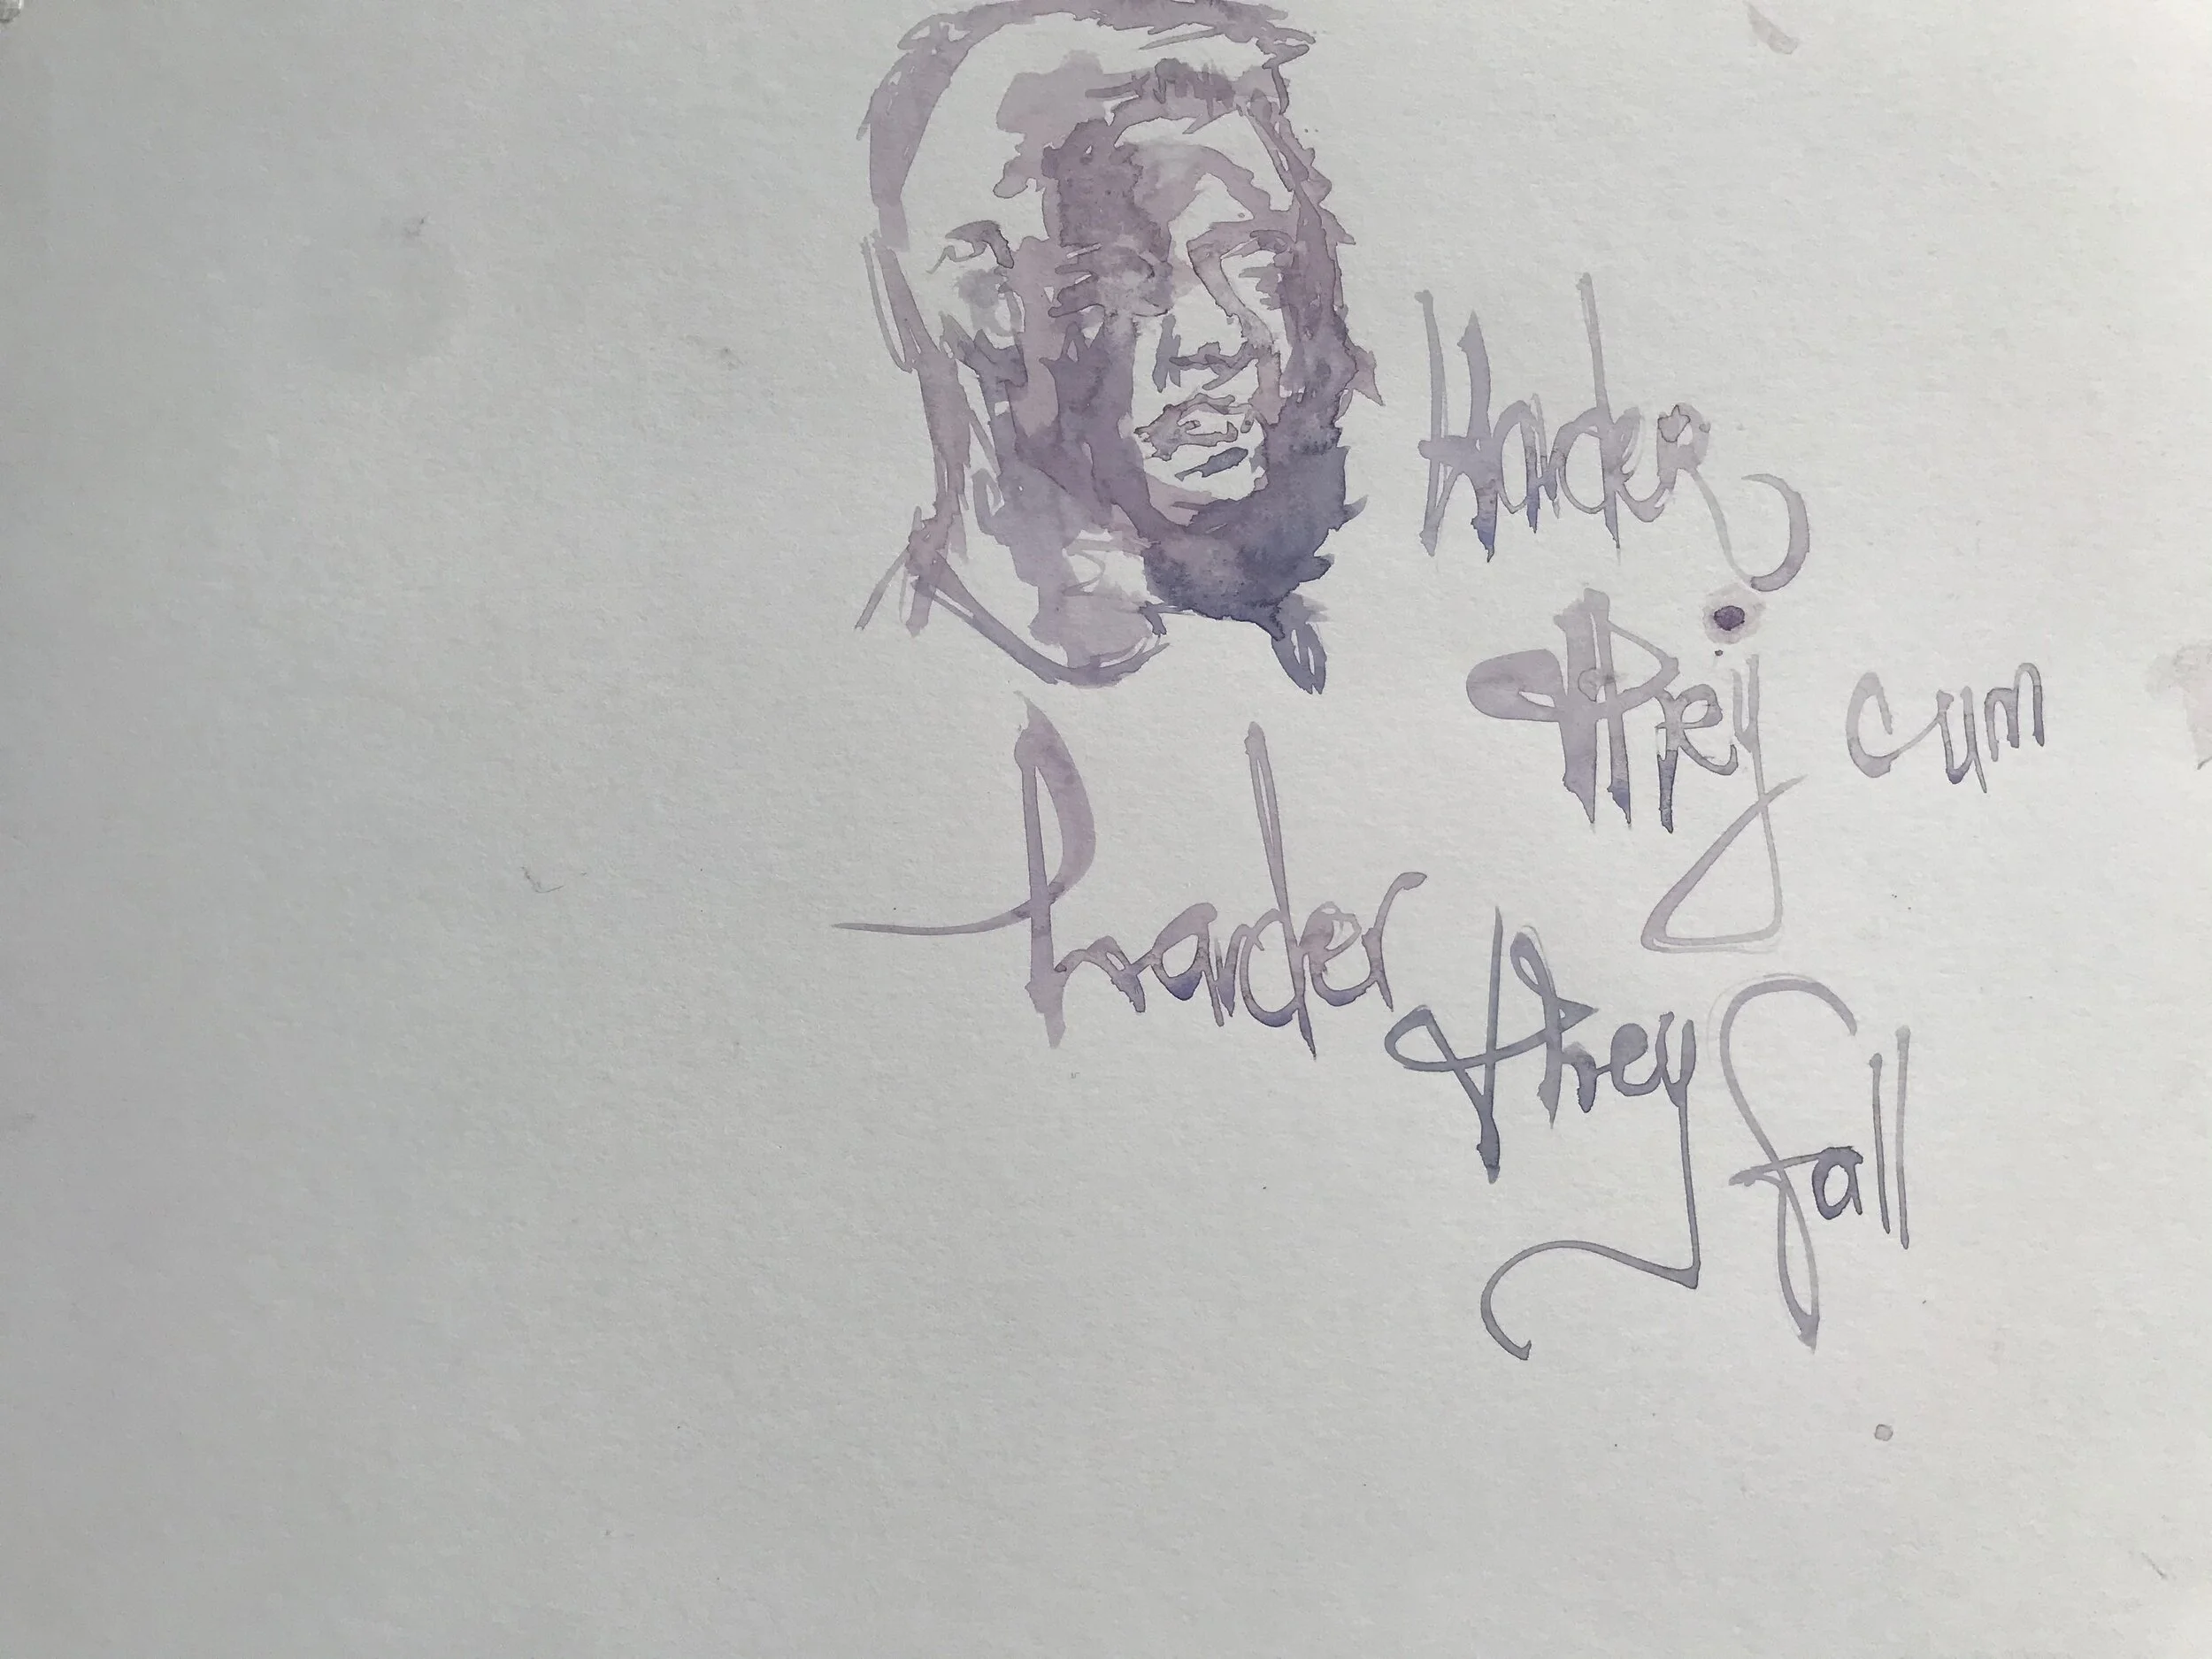 Harder
they cum
harder
they fall